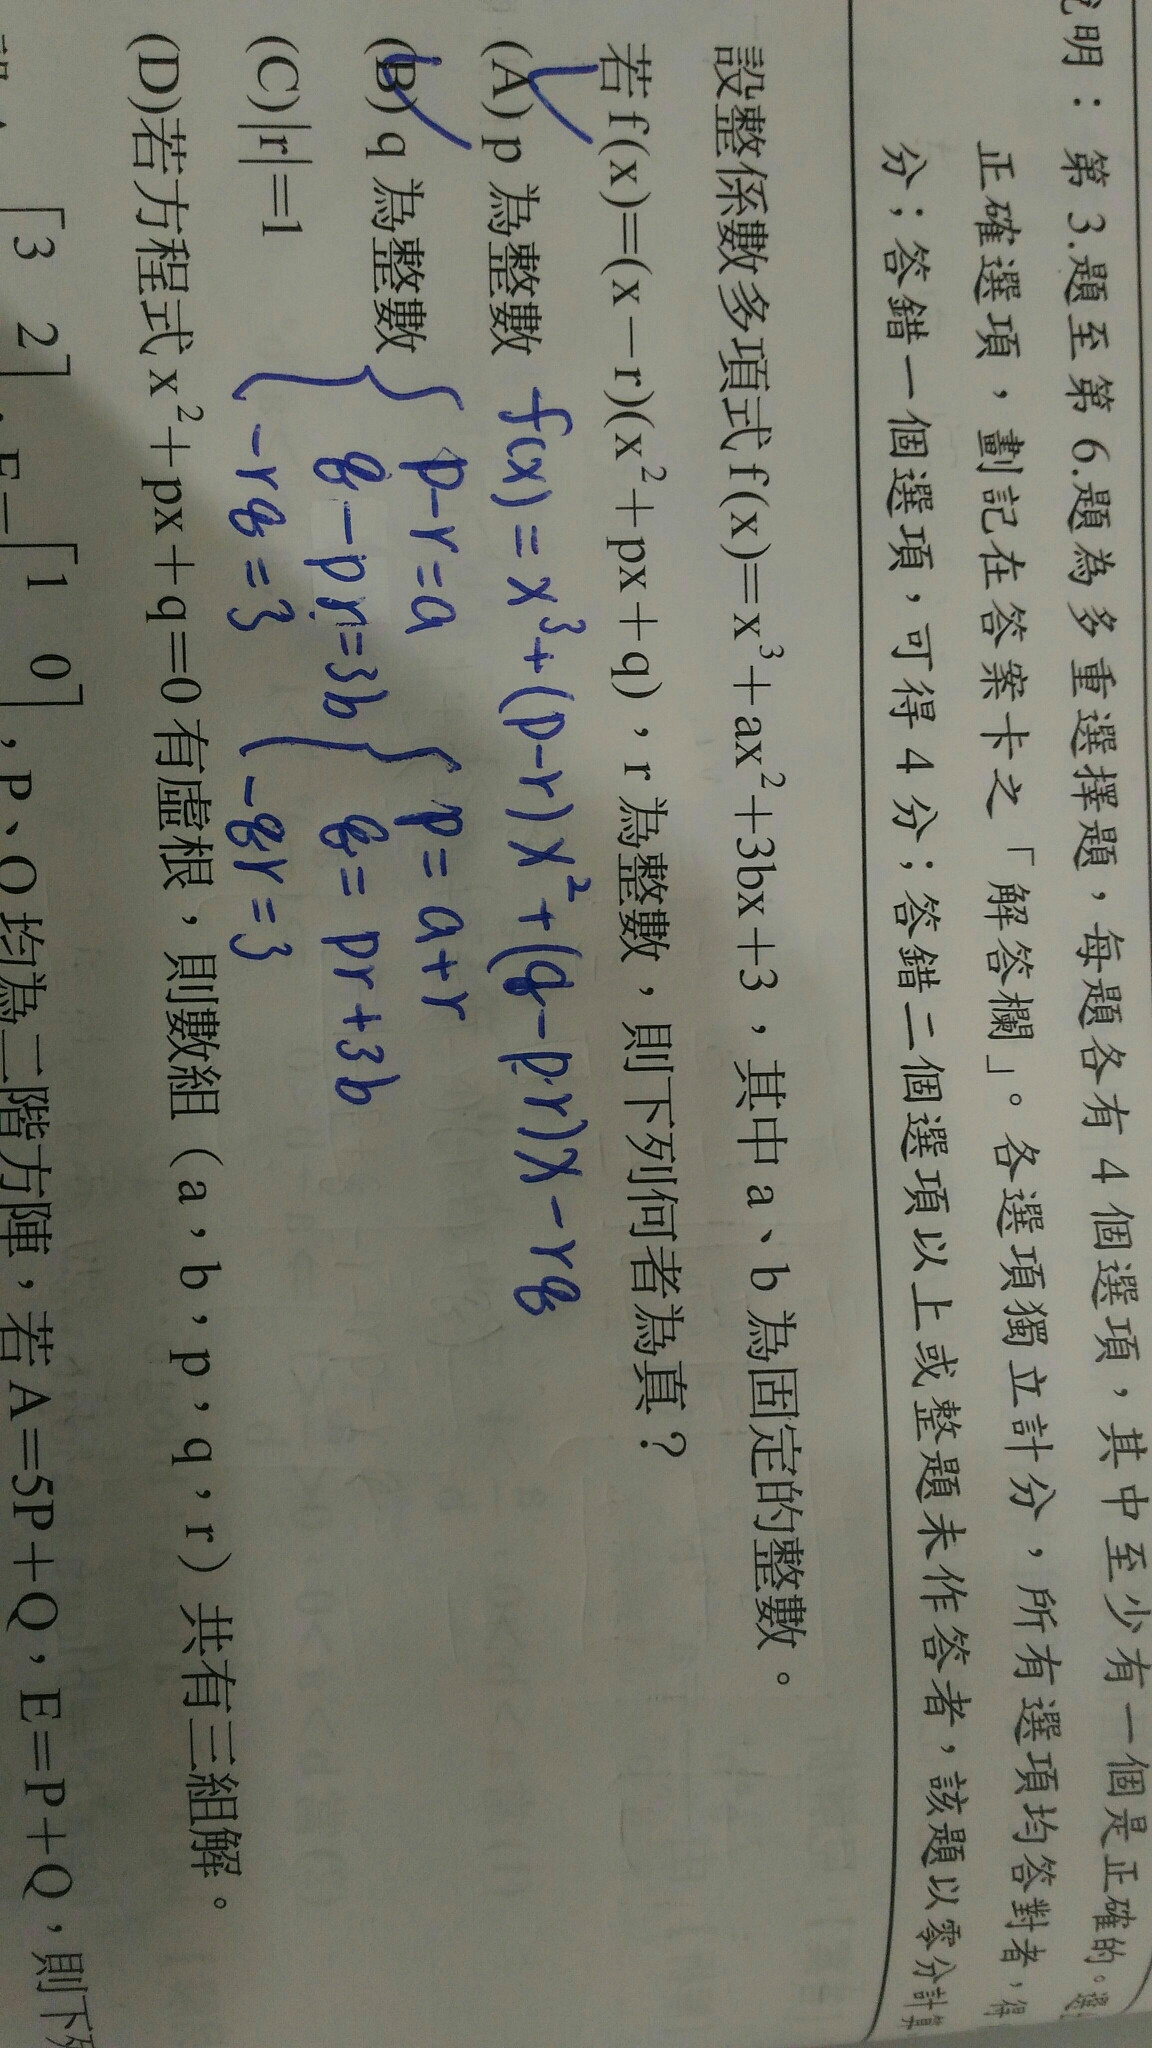 明：第3.題至第6.題為多重選擇題，每題各有4個選項，其中至少有一個是正確的。
正確選項，劃記在答案卡之「解答欄」。各選項獨立計分，所有選項均答對者，得
分；答錯一個選項，可得4分；答錯二個選項以上或整題未作答者，該題以零分計算
設整係數多項式f(x)=x³+ax²+3bx+3，其中a、b為固定的整數。
若f(x)=(x−r)(x²+px+q)，r為整數，則下列何者為真？
(A) p為整數 f(x)=x³+(p-r)x²+(q-pr)x-rq
(B) q為整數 { p-r=a { p=a+r
q-pr=3b q=pr+3b
(C)|r|=1 -rq=3 -qr=3
(D)若方程式x²+px+q=0有虛根，則數組（a，b，p，q，r）共有三組解。
[3 2]，E=[1 0]，P、Q均為二階方陣，若A=5P+Q，E=P+Q，則下列